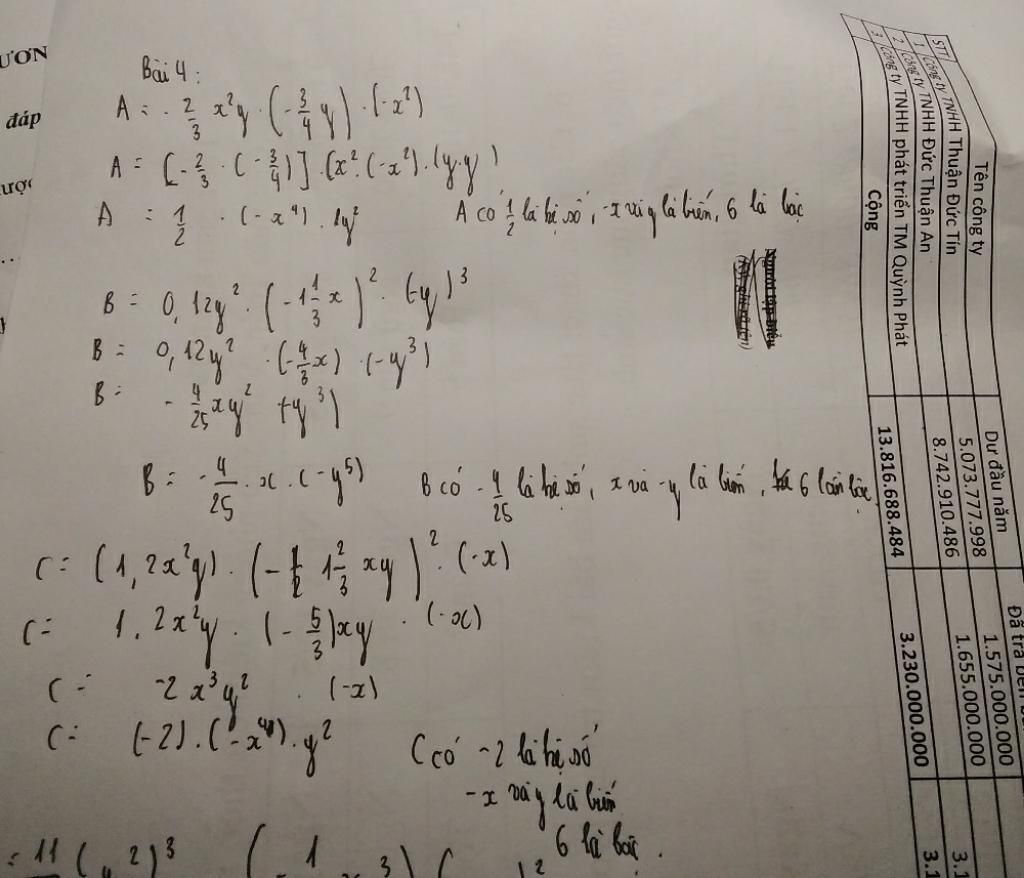 ƯƠN
đáp
ược
Bài 4:
A = - 2/3 x²y · (- 3/4 y) · (-x²)
A = [- 2/3 · (- 3/4)] · (x² · (-x²) · (y·y)
A = 1/2 · (-x⁴) · 1y² A có 1/2 là hệ số, -x và y là biến, 6 là bậc
B = 0,12y² · (-1 1/3 x)² · (-y)³
B = 0,12y² · (- 4/3 x) · (-y³)
B = - 4/25 xy² (-y³)
B = - 4/25 · x · (-y⁵) B có - 4/25 là hệ số, x và -y là biến, 6 là bậc
C = (1,2x²y) · (- 1 2/3 xy)² · (-x)
C = 1,2x²y · (- 5/3) xy · (-x)
C = -2x³y² · (-x)
C = (-2) · (-x⁴) · y² C có -2 là hệ số
-x và y là biến
6 là bậc.
STT Tên công ty Dư đầu năm
1 Công ty TNHH Thuận Đức Tín 5.073.777.998 1.575.000.000
2 Công ty TNHH Đức Thuận An 8.742.910.486 1.655.000.000 3.1
3 Công ty TNHH phát triển TM Quỳnh Phát
Cộng 13.816.688.484 3.230.000.000 3.1